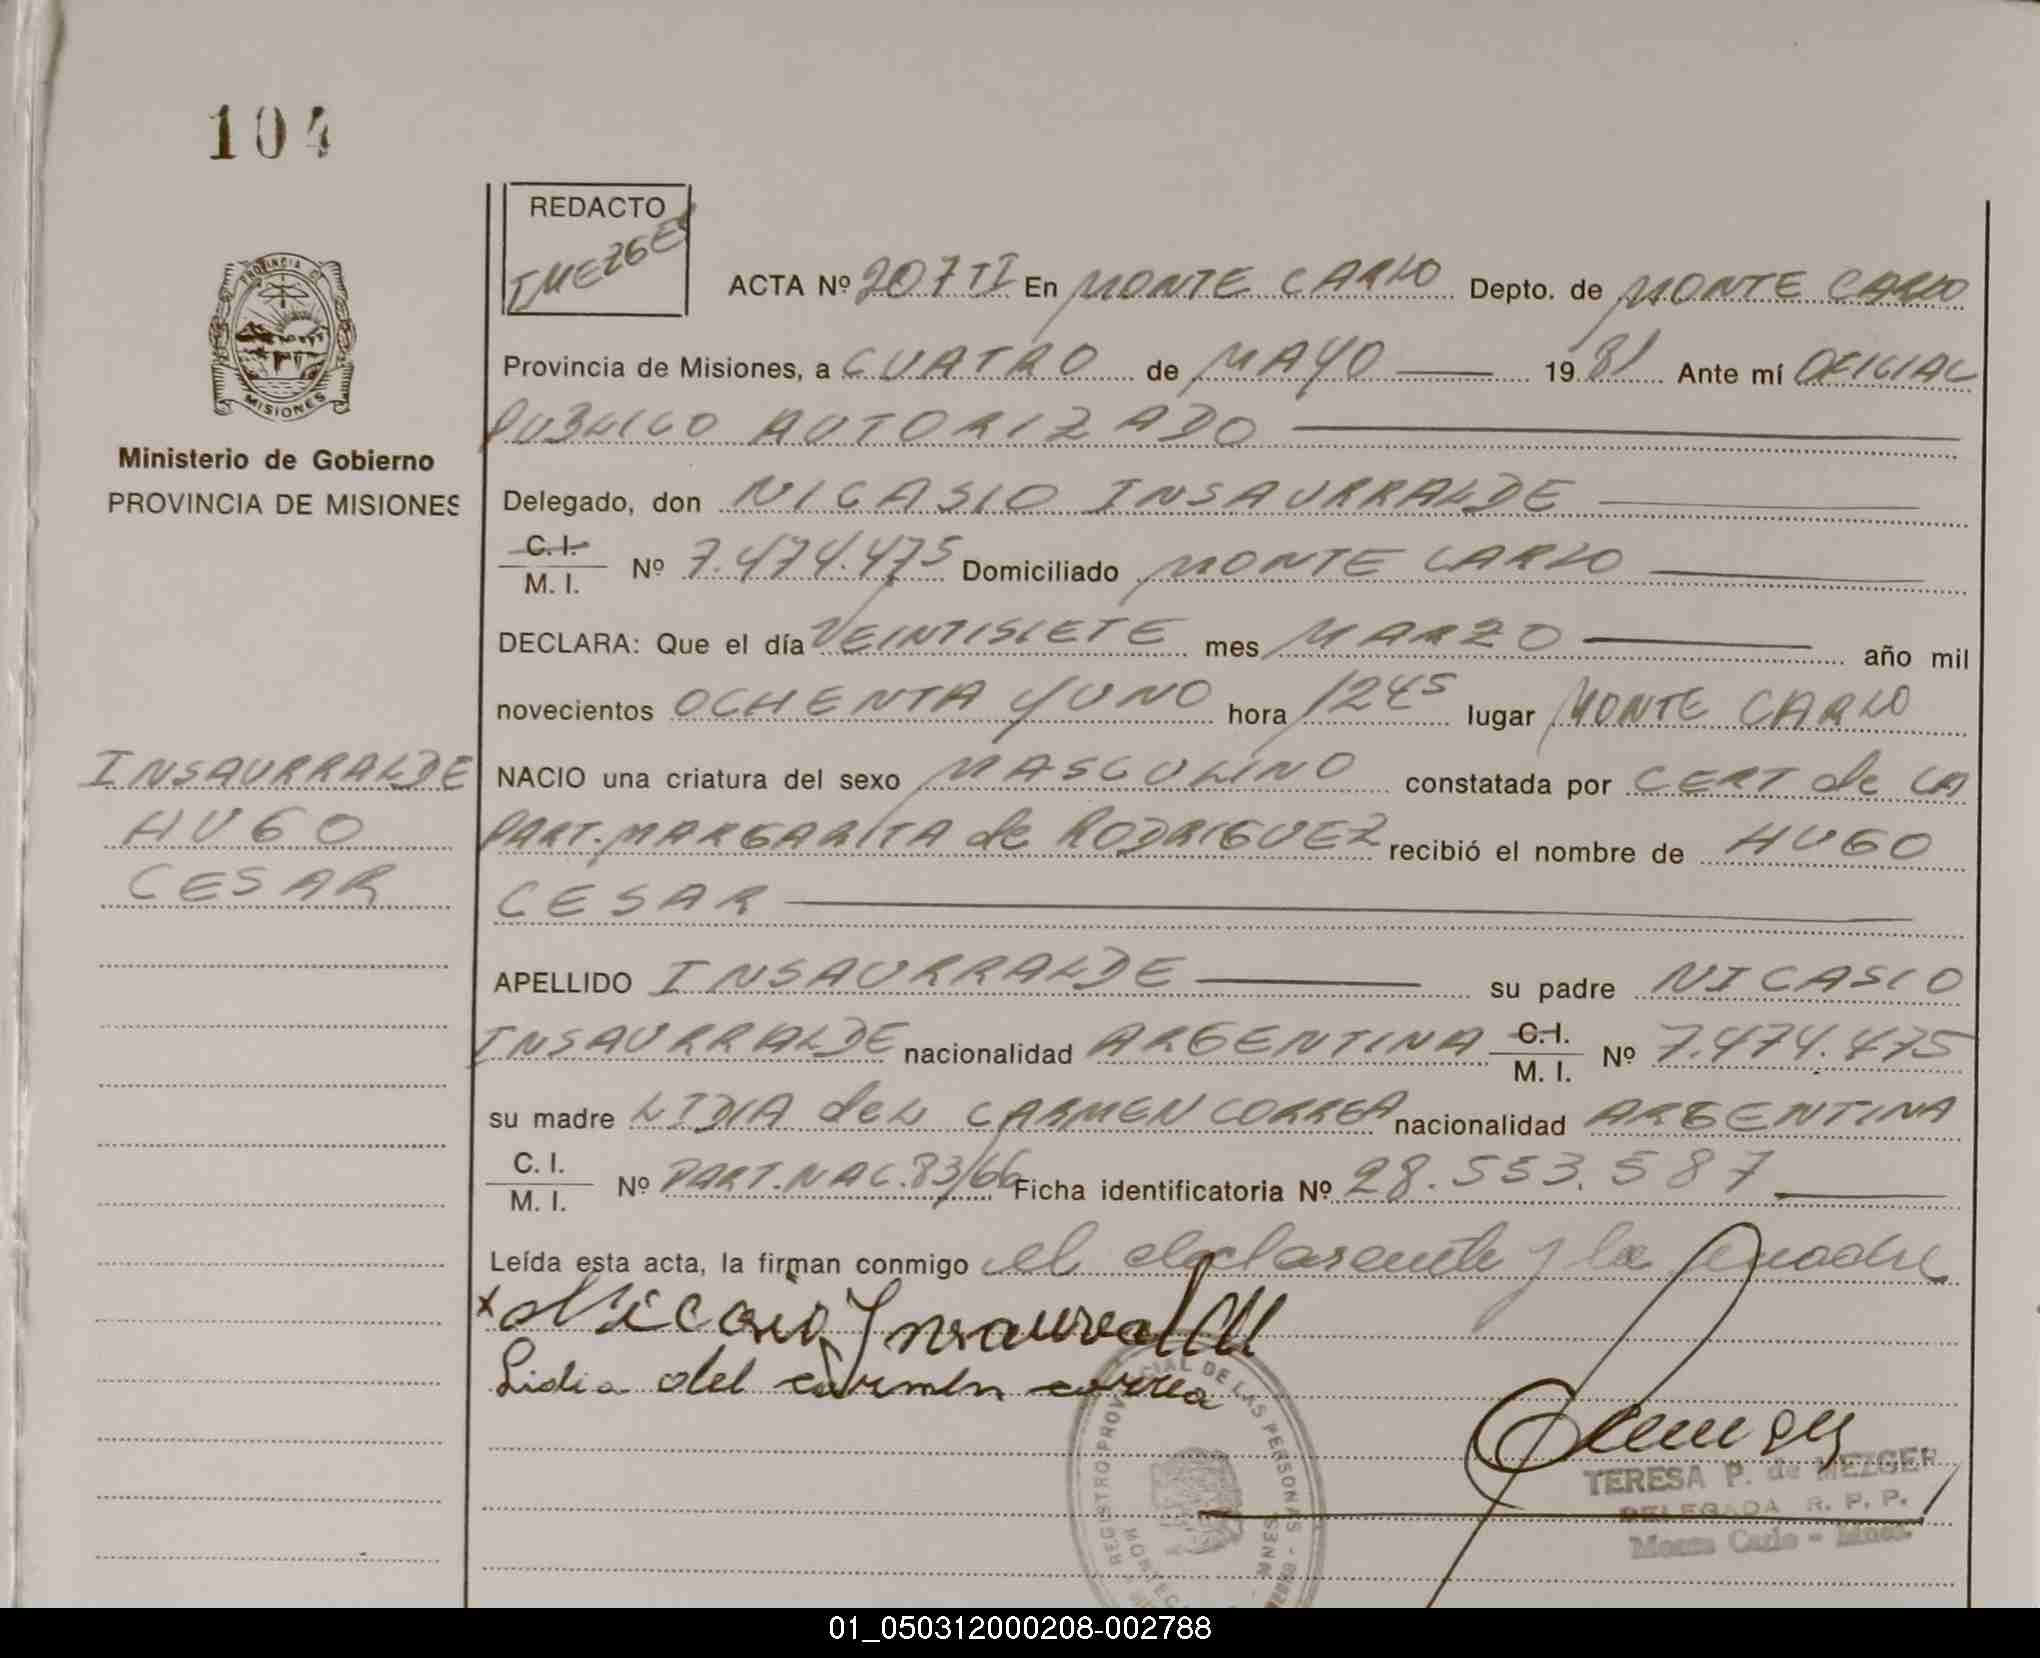 104
REDACTO
T MEZGER
ACTA Nº 207 TI En MONTE CARLO Depto. de MONTE CARLO
Provincia de Misiones, a CUATRO de MAYO 19 81 Ante mí OFICIAL
PUBLICO AUTORIZADO
PROVINCIA
MISIONES
Ministerio de Gobierno
PROVINCIA DE MISIONES
Delegado, don NICASIO INSAURRALDE
C. I. / M. I. Nº 7.474.475 Domiciliado MONTE CARLO
DECLARA: Que el día VEINTISIETE mes MARZO año mil
novecientos OCHENTA Y UNO hora 1245 lugar MONTE CARLO
INSAURRALDE
HUGO
CESAR
NACIO una criatura del sexo MASCULINO constatada por CERT de LA
PART. MARGARITA de RODRIGUEZ recibió el nombre de HUGO
CESAR
APELLIDO INSAURRALDE su padre NICASIO
INSAURRALDE nacionalidad ARGENTINA C. I. / M. I. Nº 7.474.475
su madre LIDIA deL CARMEN CORREA nacionalidad ARGENTINA
C. I. / M. I. Nº PART. NAC. 83/66 Ficha identificatoria Nº 28.553.587
Leída esta acta, la firman conmigo el declarante y la madre
x Nicasio Insaurralde
Lidia del carmen correa
REGISTRO PROVINCIAL DE LAS PERSONAS
TERESA P. de MEZGER
DELEGADA R. P. P.
Monte Carlo - Mnes.
01_050312000208-002788